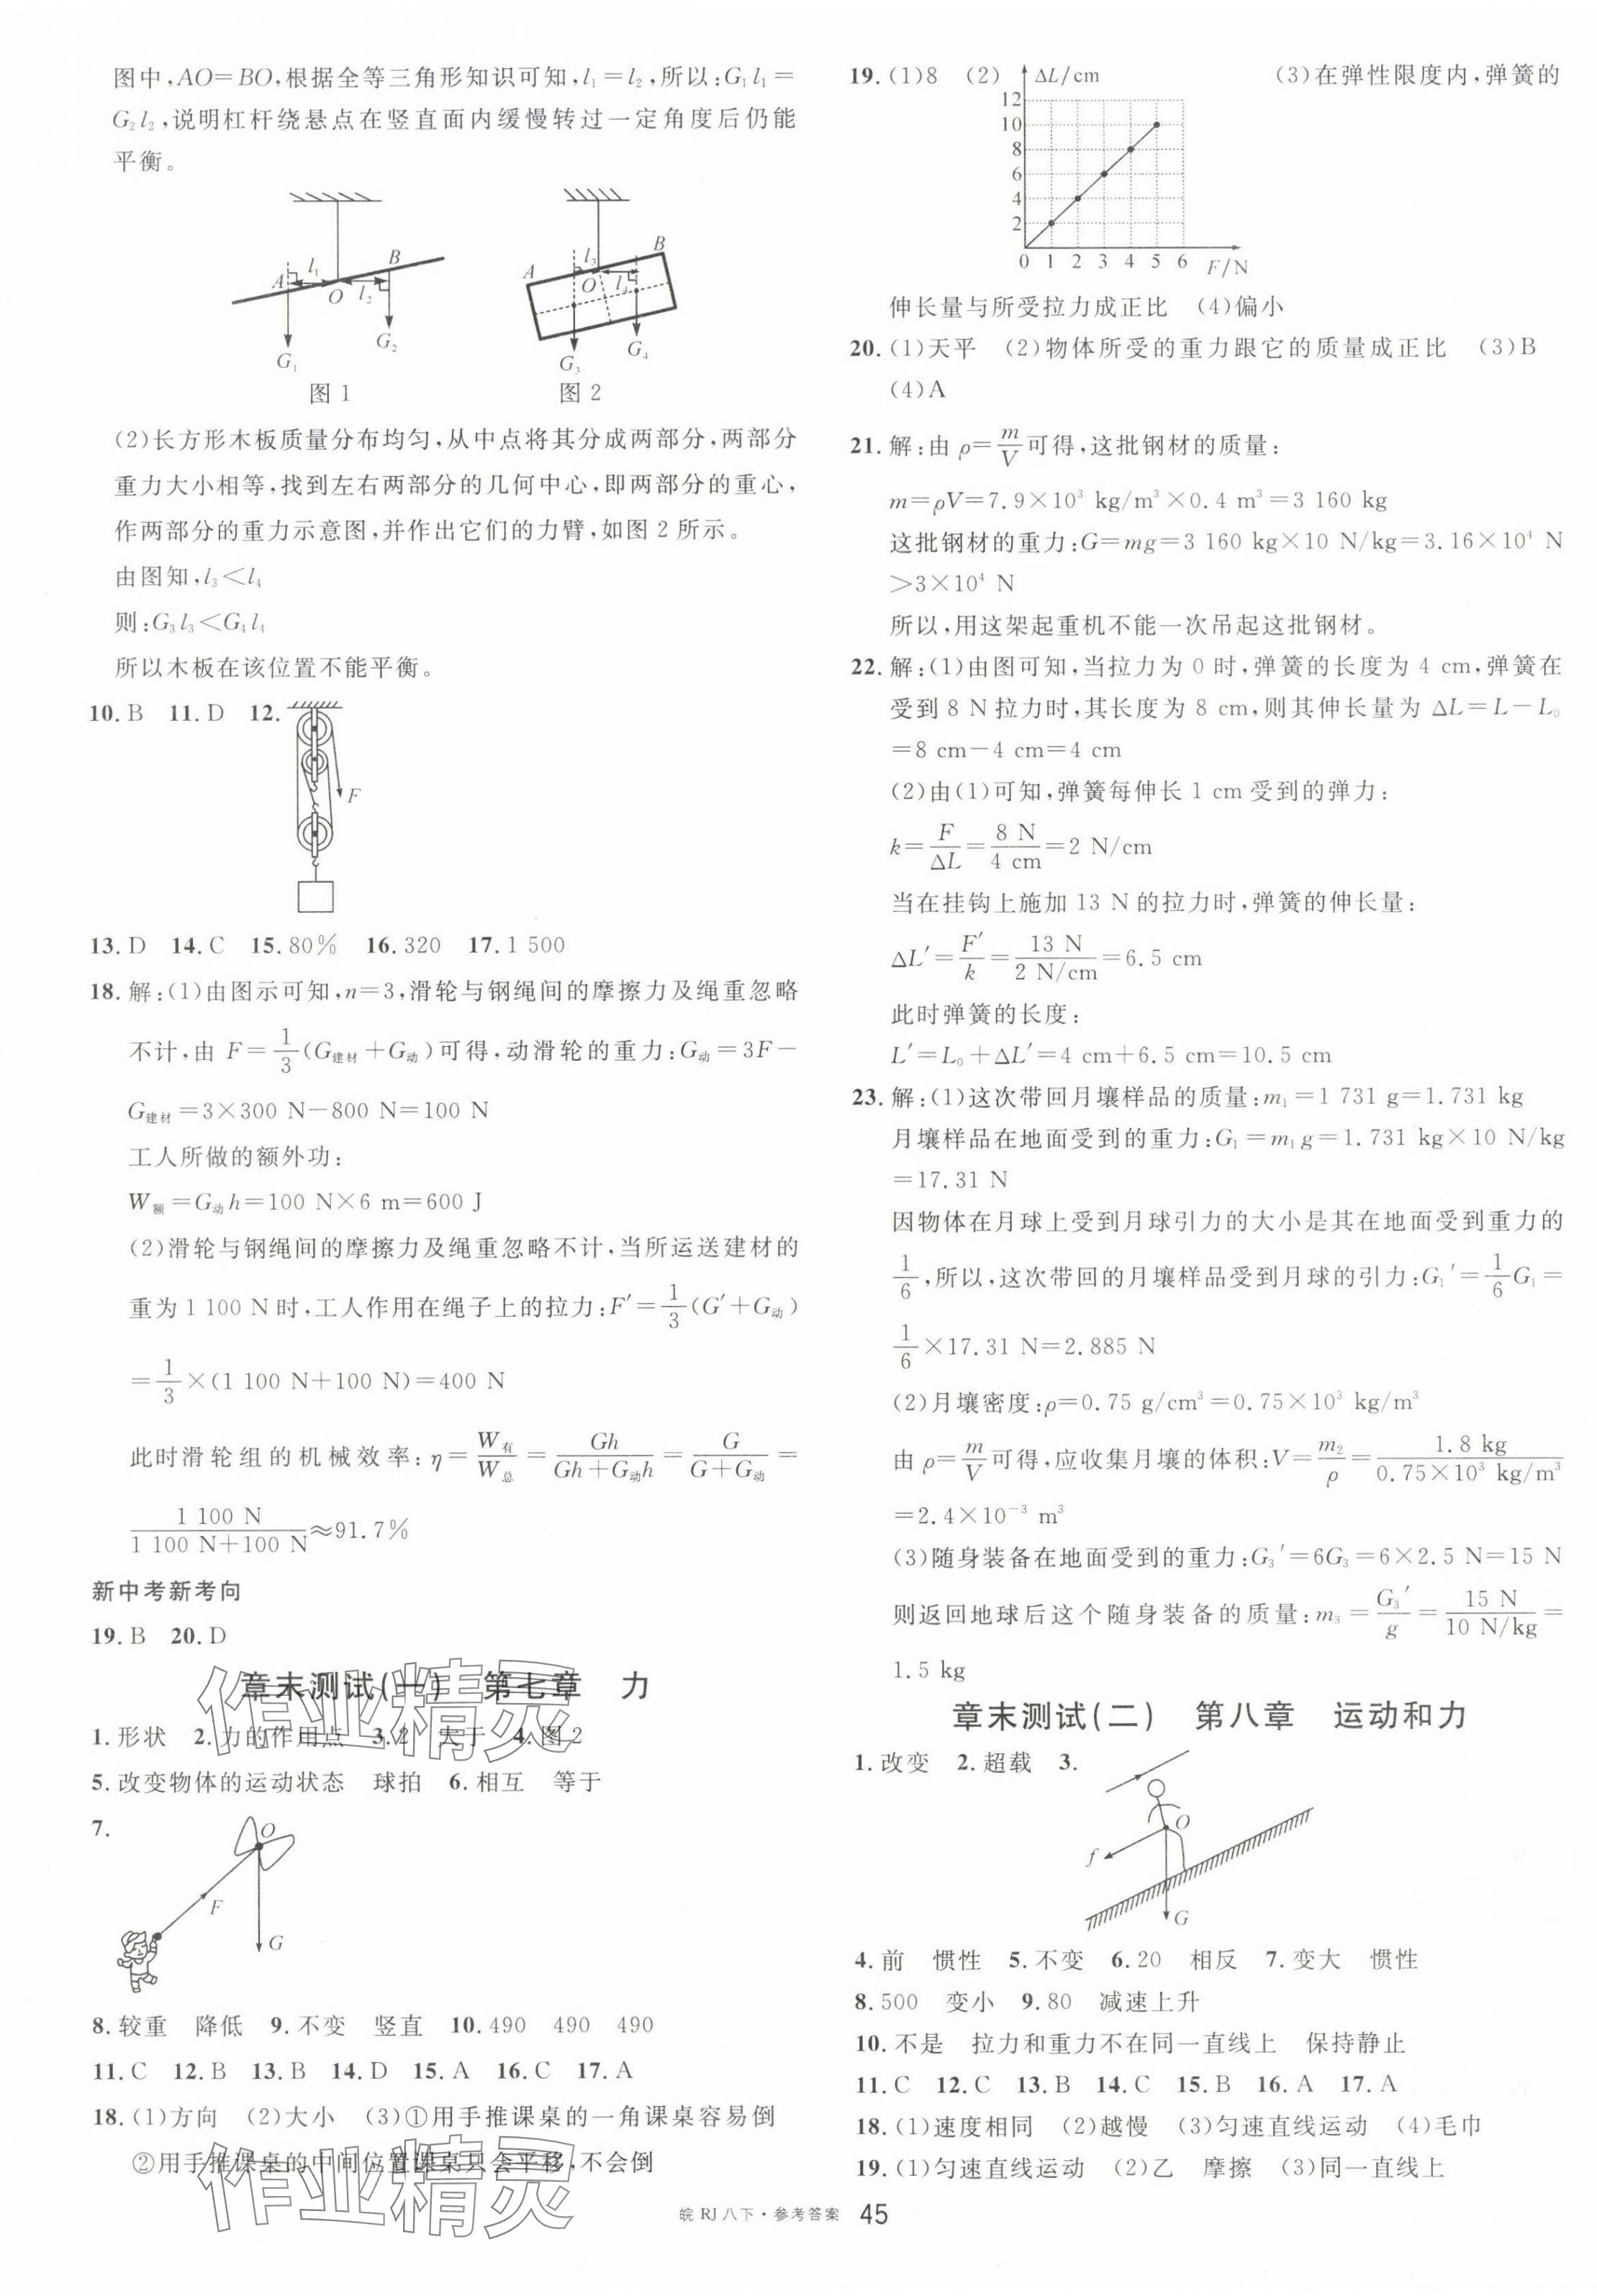 图中,AO=BO,根据全等三角形知识可知,l₁=l₂,所以:G₁l₁=
G₂l₂,说明杠杆绕悬点在竖直面内缓慢转过一定角度后仍能
平衡。
A l₁ O l₂ B G₁ G₂
图1
A l₃ O l₄ B G₃ G₄
图2
(2)长方形木板质量分布均匀,从中点将其分成两部分,两部分
重力大小相等,找到左右两部分的几何中心,即两部分的重心,
作两部分的重力示意图,并作出它们的力臂,如图2所示。
由图知,l₃<l₄
则:G₃l₃<G₄l₄
所以木板在该位置不能平衡。
10. B 11. D 12.
F
13. D 14. C 15. 80% 16. 320 17. 1 500
18. 解:(1)由图示可知,n=3,滑轮与钢绳间的摩擦力及绳重忽略
不计,由 F=1/3(G建材+G动)可得,动滑轮的重力:G动=3F-
G建材=3×300 N-800 N=100 N
工人所做的额外功:
W额=G动h=100 N×6 m=600 J
(2)滑轮与钢绳间的摩擦力及绳重忽略不计,当所运送建材的
重为1 100 N时,工人作用在绳子上的拉力:F′=1/3(G′+G动)
=1/3×(1 100 N+100 N)=400 N
此时滑轮组的机械效率:η=W有/W总=Gh/(Gh+G动h)=G/(G+G动)=
1 100 N/(1 100 N+100 N)≈91.7%
新中考新考向
19. B 20. D
章末测试(一) 第七章 力
1. 形状 2. 力的作用点 3. 2 大于 4. 图2
5. 改变物体的运动状态 球拍 6. 相互 等于
7.
O F G
8. 较重 降低 9. 不变 竖直 10. 490 490 490
11. C 12. B 13. B 14. D 15. A 16. C 17. A
18. (1)方向 (2)大小 (3)①用手推课桌的一角课桌容易倒
②用手推课桌的中间位置课桌只会平移,不会倒
作业精灵
作业精灵
19. (1)8 (2) (3)在弹性限度内,弹簧的
ΔL/cm
12
10
8
6
4
2
0 1 2 3 4 5 6 F/N
伸长量与所受拉力成正比 (4)偏小
20. (1)天平 (2)物体所受的重力跟它的质量成正比 (3)B
(4)A
21. 解:由 ρ=m/V可得,这批钢材的质量:
m=ρV=7.9×10³ kg/m³×0.4 m³=3 160 kg
这批钢材的重力:G=mg=3 160 kg×10 N/kg=3.16×10⁴ N
>3×10⁴ N
所以,用这架起重机不能一次吊起这批钢材。
22. 解:(1)由图可知,当拉力为0时,弹簧的长度为4 cm,弹簧在
受到8 N拉力时,其长度为8 cm,则其伸长量为 ΔL=L-L₀
=8 cm-4 cm=4 cm
(2)由(1)可知,弹簧每伸长1 cm受到的弹力:
k=F/ΔL=8 N/4 cm=2 N/cm
当在挂钩上施加13 N的拉力时,弹簧的伸长量:
ΔL′=F′/k=13 N/(2 N/cm)=6.5 cm
此时弹簧的长度:
L′=L₀+ΔL′=4 cm+6.5 cm=10.5 cm
23. 解:(1)这次带回月壤样品的质量:m₁=1 731 g=1.731 kg
月壤样品在地面受到的重力:G₁=m₁g=1.731 kg×10 N/kg
=17.31 N
因物体在月球上受到月球引力的大小是其在地面受到重力的
1/6,所以,这次带回的月壤样品受到月球的引力:G₁′=1/6G₁=
1/6×17.31 N=2.885 N
(2)月壤密度:ρ=0.75 g/cm³=0.75×10³ kg/m³
由 ρ=m/V可得,应收集月壤的体积:V=m₂/ρ=1.8 kg/(0.75×10³ kg/m³)
=2.4×10⁻³ m³
(3)随身装备在地面受到的重力:G₃′=6G₃=6×2.5 N=15 N
则返回地球后这个随身装备的质量:m₃=G₃′/g=15 N/(10 N/kg)=
1.5 kg
章末测试(二) 第八章 运动和力
1. 改变 2. 超载 3.
O f G
4. 前 惯性 5. 不变 6. 20 相反 7. 变大 惯性
8. 500 变小 9. 80 减速上升
10. 不是 拉力和重力不在同一直线上 保持静止
11. C 12. C 13. B 14. C 15. B 16. A 17. A
18. (1)速度相同 (2)越慢 (3)匀速直线运动 (4)毛巾
19. (1)匀速直线运动 (2)乙 摩擦 (3)同一直线上
皖 RJ 八下·参考答案 45